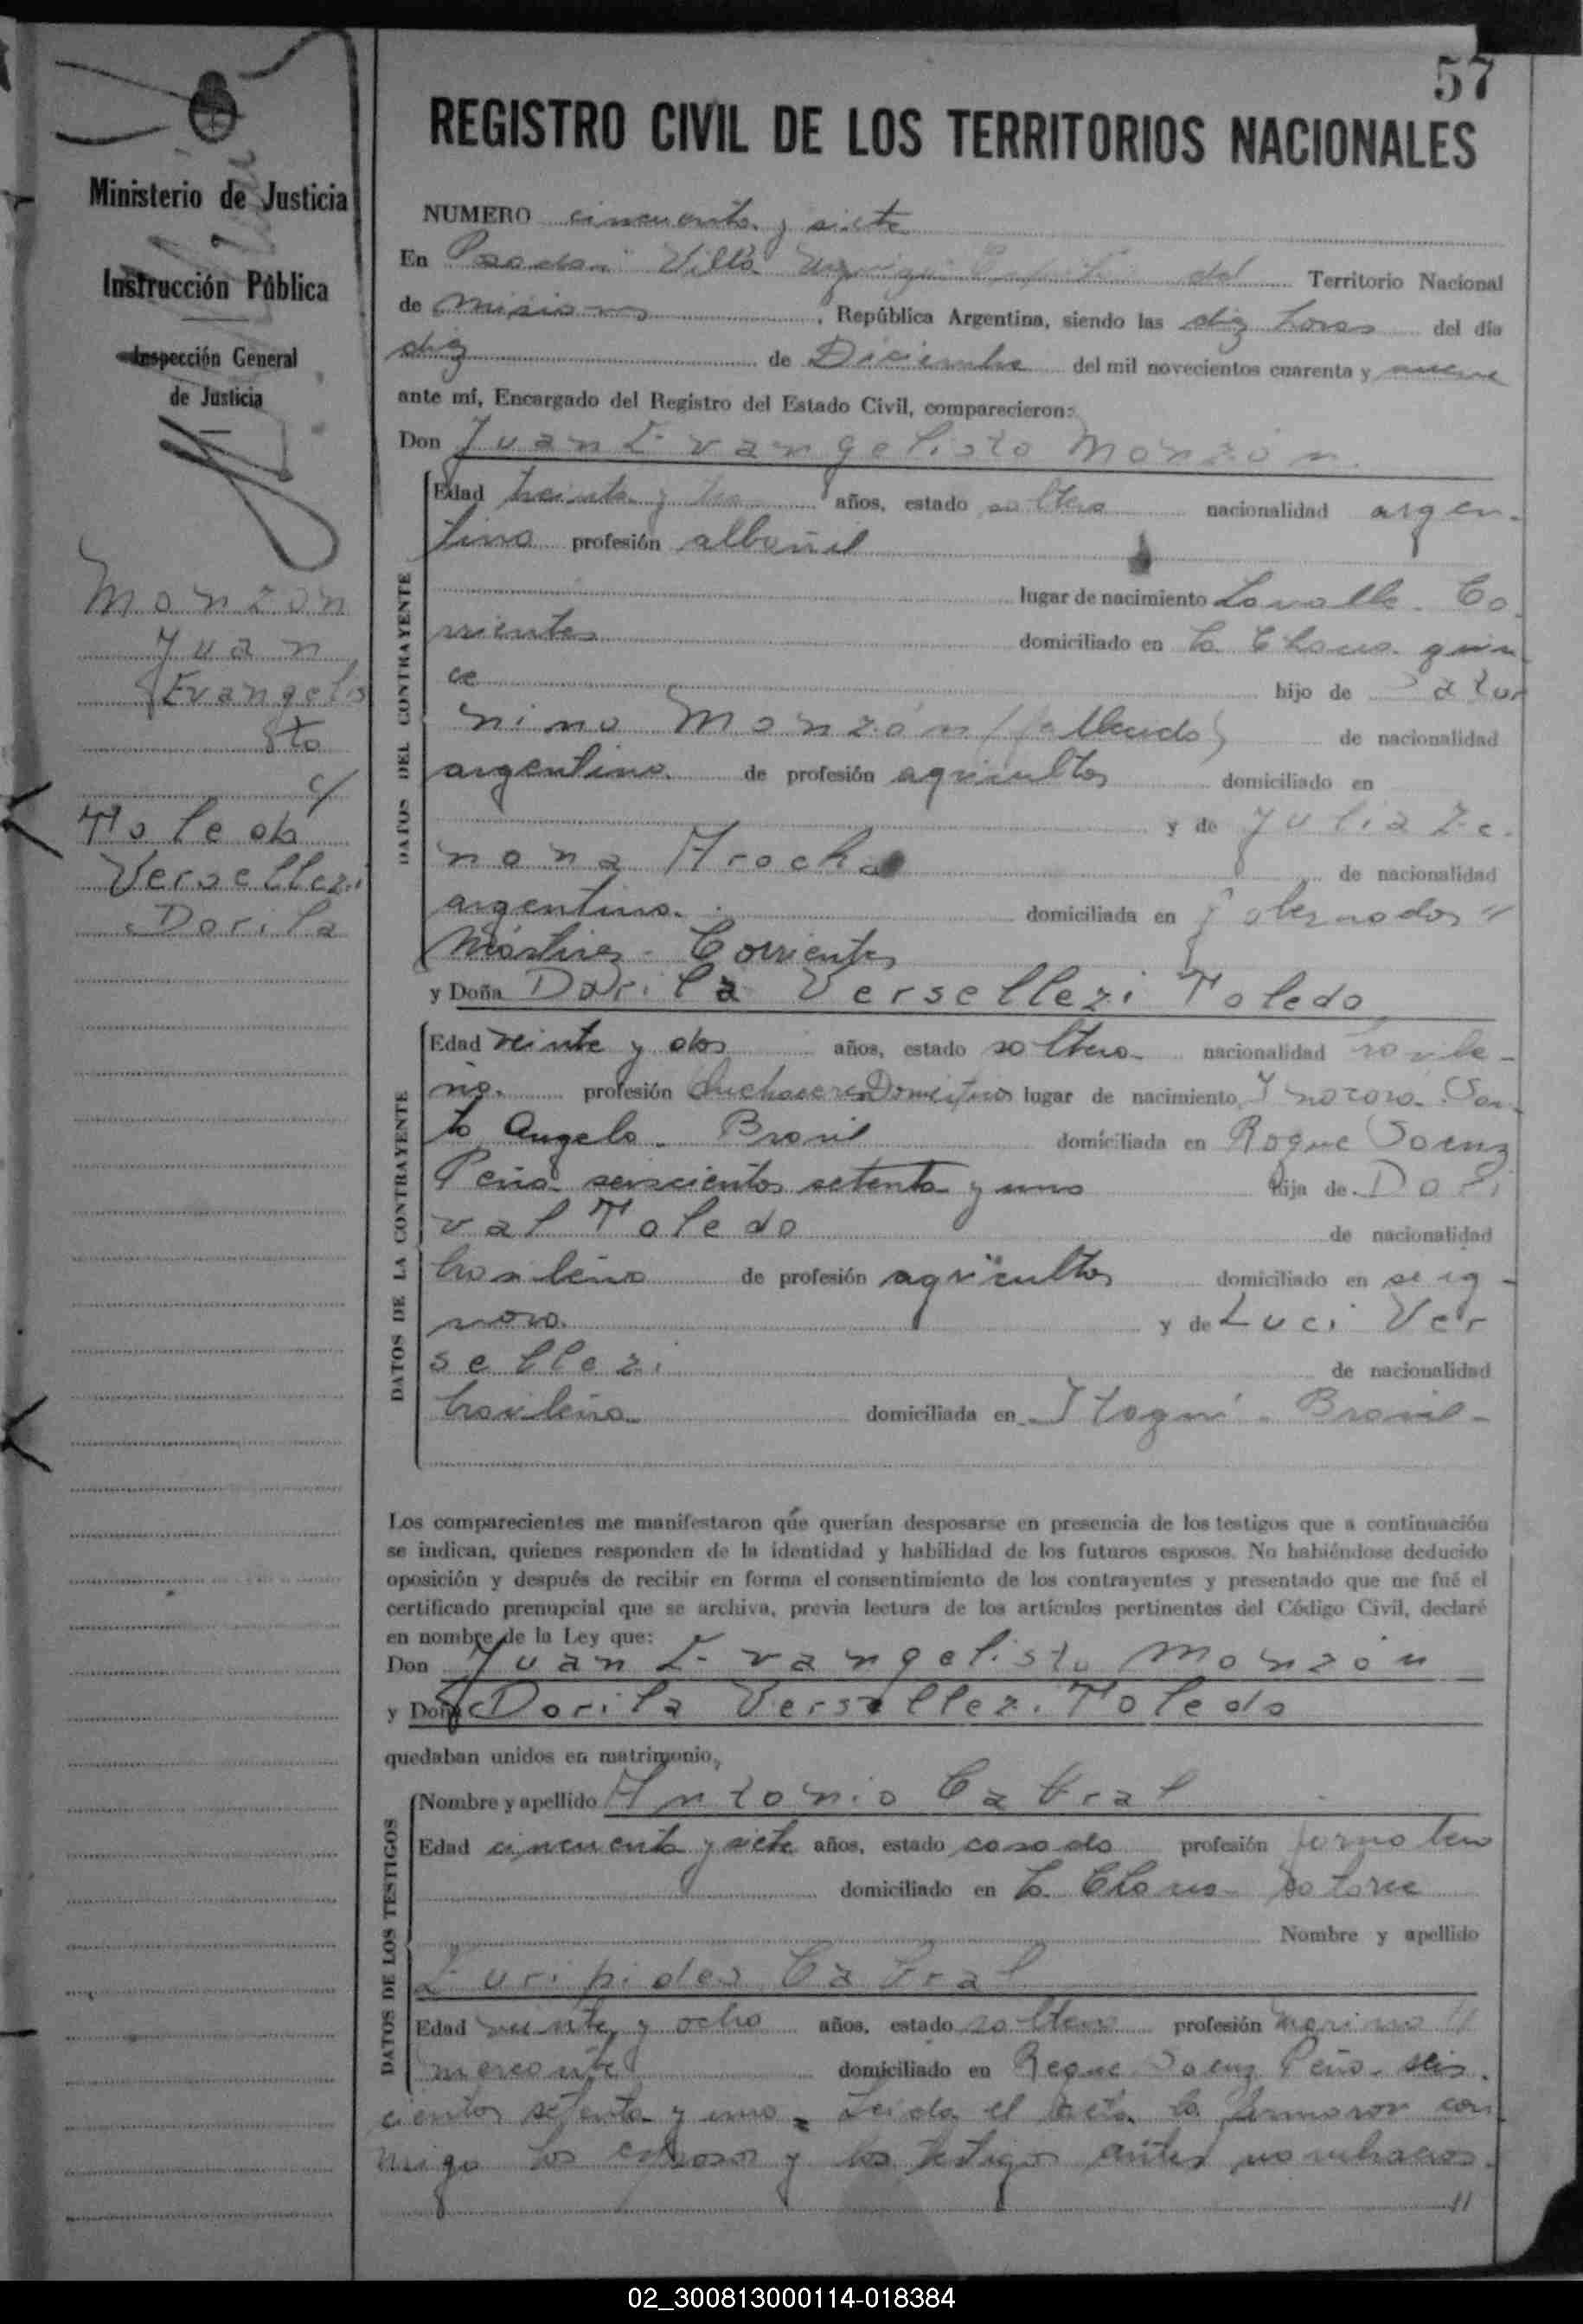 57
REGISTRO CIVIL DE LOS TERRITORIOS NACIONALES
Ministerio de Justicia
e
Instrucción Pública
Inspección General
de Justicia
Monzón
Juan
Evangelis
to
c/
Toledo
Versellezi
Dorila
NUMERO cincuenta y siete
En Posadas Villa Urquiza Capital del Territorio Nacional
de Misiones, República Argentina, siendo las diez horas del día
diez de Diciembre del mil novecientos cuarenta y nueve
ante mí, Encargado del Registro del Estado Civil, comparecieron:
Don Juan Evangelisto Monzón
DATOS DEL CONTRAYENTE
Edad treinta y tres años, estado soltero nacionalidad argen-
tino profesión albañil
lugar de nacimiento Lavalle - Co
rrientes domiciliado en La Chaco quin
ce hijo de Satur
nino Monzón (fallecido) de nacionalidad
argentino de profesión agricultor domiciliado en
y de Julia Ze-
nona Arocha de nacionalidad
argentina domiciliada en Gobernador "
Mártinez - Corrientes
y Doña Dorila Versellezi Toledo
DATOS DE LA CONTRAYENTE
Edad veinte y dos años, estado soltera nacionalidad brasile-
ña profesión Quehaceres Domésticos lugar de nacimiento San
to Angelo - Brasil domiciliada en Roque Saenz
Peña seiscientos setenta y uno hija de Dori
val Toledo de nacionalidad
brasileño de profesión agricultor domiciliado en se ig-
nora y de Luci Ver
sellezi de nacionalidad
brasileña domiciliada en Itaquí - Brasil -
Los comparecientes me manifestaron que querían desposarse en presencia de los testigos que a continuación
se indican, quienes responden de la identidad y habilidad de los futuros esposos. No habiéndose deducido
oposición y después de recibir en forma el consentimiento de los contrayentes y presentado que me fué el
certificado prenupcial que se archiva, previa lectura de los artículos pertinentes del Código Civil, declaré
en nombre de la Ley que:
Don Juan Evangelisto Monzón
y Doña Dorila Versellezi Toledo
quedaban unidos en matrimonio,
DATOS DE LOS TESTIGOS
Nombre y apellido Antonio Cabral
Edad cincuenta y siete años, estado casado profesión jornalero
domiciliado en La Chaco catorce
Nombre y apellido
Euripides Cabral
Edad veinte y ocho años, estado soltero profesión marino "
mercante domiciliado en Roque Saenz Peña seis-
cientos setenta y uno = Leida el acta la firmaron con
migo los esposos y los testigos antes nombrados.
"
02_300813000114-018384